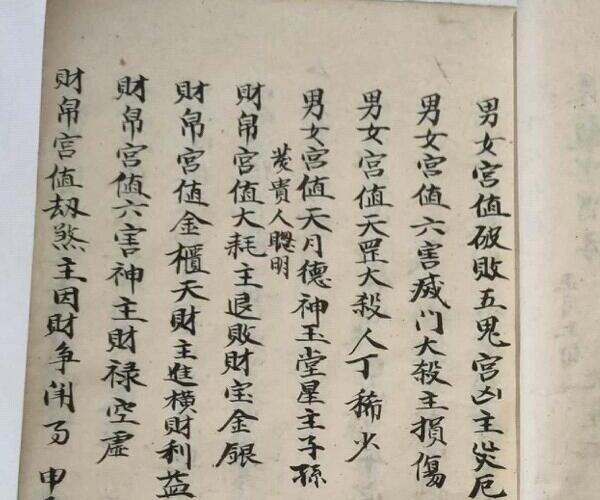 男女宮值破敗五鬼宮凶主災厄
男女宮值六害咸门大殺主損傷
男女宮值天罡大殺人丁稀少
男女宮值天月德神玉堂星主子孫
发貴人聰明
財帛宮值大耗主退敗財宝金銀
財帛宮值金櫃天財主進橫財利益
財帛宮值六害神主財禄空虛
財帛宮值劫煞主因財争闹 申